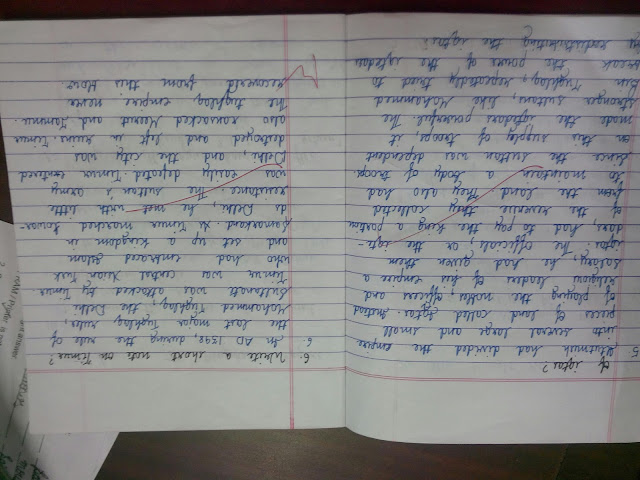 of iqtas?
5 Iltutmish had divided the empire
into several large and small
pieces of land called iqtas. Instead
of the paying the nobles, officers and
religious leaders of his empire a
salary, he had given them
iqtas. The officials, or the iqta-
dars, had to pay the king a portion
of the revenue they collected
from the land. They also had
to maintain a body of troops.
Since the sultan was dependent
on the supply of troops, it
made the iqtadars powerful. The
stronger sultans, like Mohammed
Bin Tughlaq, repeatedly tried to
break the power of the iqtadars
by redistributing the iqtas?
6. Write a short note on Timur?
6. In AD 1398, during the rule of
the last major Tughlaq ruler,
Mohammed Tughlaq, the Delhi
Sultanate was attacked by Timur
Timur was central Asian Turk
who had embraced Islam
and set up a kingdom in
Samarkand. As Timur marched towar-
ds Delhi, he met with little
resistance. The Sultan's army
was easily defeated. Timur entered
Delhi, and the city was
destroyed and left in ruins Timur
also ransacked Meerut and Jammu.
The Tughlaq empire never
recovered from this blow.